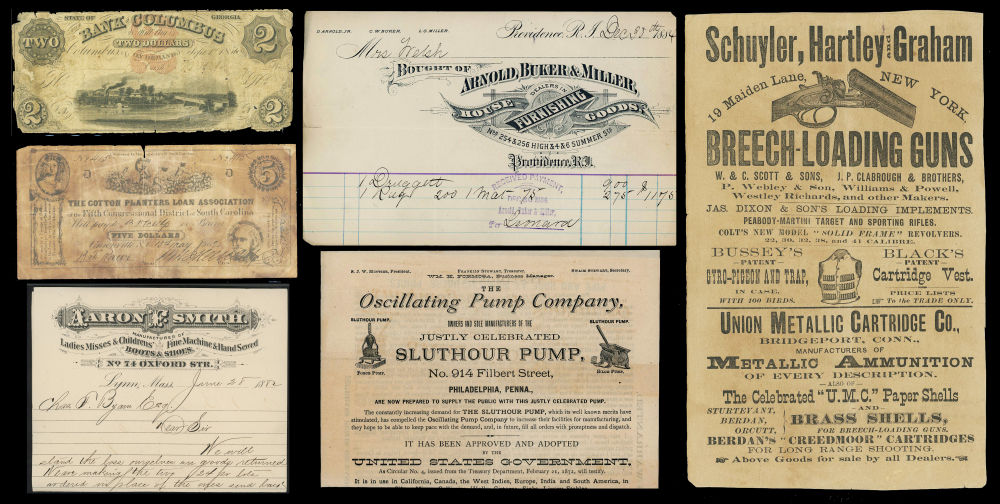 STATE OF GEORGIA.
BANK COLUMBUS
TWO
TWO DOLLARS
2
ON DEMAND
2
2
5
THE COTTON PLANTERS LOAN ASSOCIATION
of the Fifth Congressional District of South Carolina
Will pay
FIVE DOLLARS
AARON F. SMITH,
MANUFACTURER OF
Ladies Misses & Childrens' Fine Machine & Hand Sewed
BOOTS & SHOES.
No 74 OXFORD STR.
Lynn, Mass June 28 1882
Chas. F. Byam Esq.
Dear Sir
We will
stand the loss ourselves on goods returned
We are making the two
ordered in place of the ones sent back
D ARNOLD, JR. C.W. BUKER. I.G. MILLER.
Providence, R. I., Dec 30th 1884
Mrs Welsh
BOUGHT OF
ARNOLD, BUKER & MILLER,
DEALERS IN
HOUSE FURNISHING GOODS,
Nos 254 & 256 HIGH & 4 & 6 SUMMER STS
Providence, R.I.
RECEIVED PAYMENT,
1 Druggett 900
1 Rug 200 1 Mat 75 275 $11 75
Arnold, Buker & Miller,
Per Leonard
R. J. W. Mintess, President. FRANKLIN STEWART, Treasurer. HIRAM STEWART, Secretary.
WM. H. FORMOSA, Business Manager.
THE
Oscillating Pump Company,
OWNERS AND SOLE MANUFACTURERS OF THE
SLUTHOUR PUMP. SLUTHOUR PUMP.
JUSTLY CELEBRATED
SLUTHOUR PUMP,
FORCE PUMP. HAND PUMP.
No. 914 Filbert Street,
PHILADELPHIA, PENNA.,
ARE NOW PREPARED TO SUPPLY THE PUBLIC WITH THIS JUSTLY CELEBRATED PUMP.
The constantly increasing demand for THE SLUTHOUR PUMP, which its well known merits have
stimulated, has compelled the Oscillating Pump Company to increase their facilities for manufacturing, and
they hope to be able to keep pace with the demand, and, in future, fill all orders with promptness and dispatch.
IT HAS BEEN APPROVED AND ADOPTED
BY THE
UNITED STATES GOVERNMENT,
As Circular No. 4, issued from the Treasury Department, February 21, 1872, will testify.
It is in use in California, Canada, the West Indies, Europe, India and South America, in
Schuyler, Hartley and Graham
19 Maiden Lane, NEW YORK,
BREECH-LOADING GUNS
W. & C. SCOTT & SONS, J. P. CLABROUGH & BROTHERS,
P. Webley & Son, Williams & Powell,
Westley Richards, and other Makers.
JAS. DIXON & SON'S LOADING IMPLEMENTS.
PEABODY-MARTINI TARGET AND SPORTING RIFLES.
COLT'S NEW MODEL "SOLID FRAME" REVOLVERS.
22, 30, 32, 38, and 41 CALIBRE.
BUSSEY'S
PATENT
GYRO-PIGEON AND TRAP,
IN CASE,
WITH 100 BIRDS.
BLACK'S
PATENT
Cartridge Vest.
PRICE LISTS
To the TRADE ONLY.
UNION METALLIC CARTRIDGE CO.,
BRIDGEPORT, CONN.,
MANUFACTURERS OF
METALLIC AMMUNITION
OF EVERY DESCRIPTION.
ALSO OF
The Celebrated "U.M.C." Paper Shells
AND
STURTEVANT,
BERDAN,
ORCUTT,
BRASS SHELLS,
FOR BREECH-LOADING GUNS.
BERDAN'S "CREEDMOOR" CARTRIDGES
FOR LONG RANGE SHOOTING.
Above Goods for sale by all Dealers.